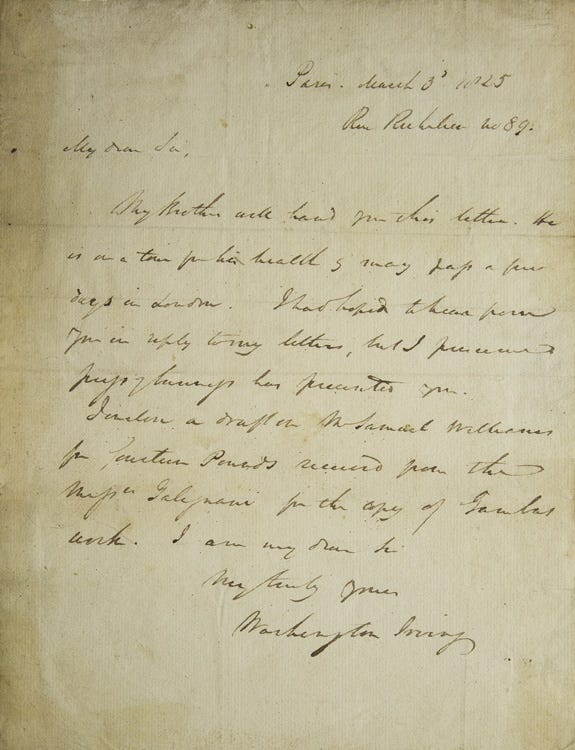 Paris. March 3d 1825
Rue Richelieu no 89.
My dear Sir,
My Brother will hand you this letter. He
is on a tour for his health & may pass a few
days in London. I had hoped to hear from
you in reply to my letters, but I presume
press of business has prevented you.
I enclose a draft on Mr Samuel Williams
for fourteen Pounds received from the
Messrs Galignani for the copy of Gambas
work. I am my dear Sir
Very truly yours
Washington Irving